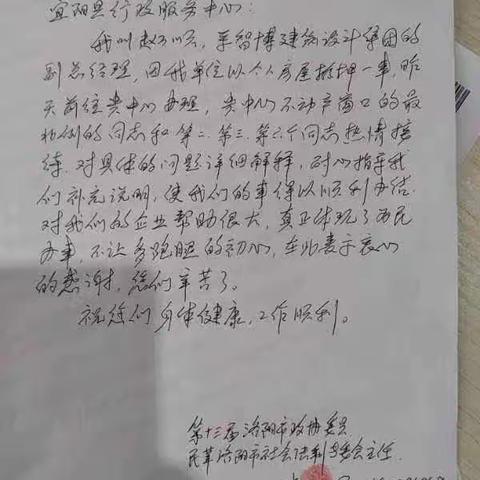 宜阳县行政服务中心:
我叫赵小顺,是智博建筑设计集团的
副总经理,因我单位以个人房屋抵押一事,昨
天前往贵中心办理,贵中心不动产窗口的最
北侧的同志和第二、第三、第六个同志热情接
待.对具体的问题详细解释,耐心指导我
们补充说明,使我们的事得以顺利办结.
对我们的企业帮助很大,真正体现了为民
办事,不让多跑腿的初心,在此表示衷心
的感谢,您们辛苦了。
祝您们身体健康,工作顺利。
第十三届洛阳市政协委员
民革洛阳市社会法制专委会主任.